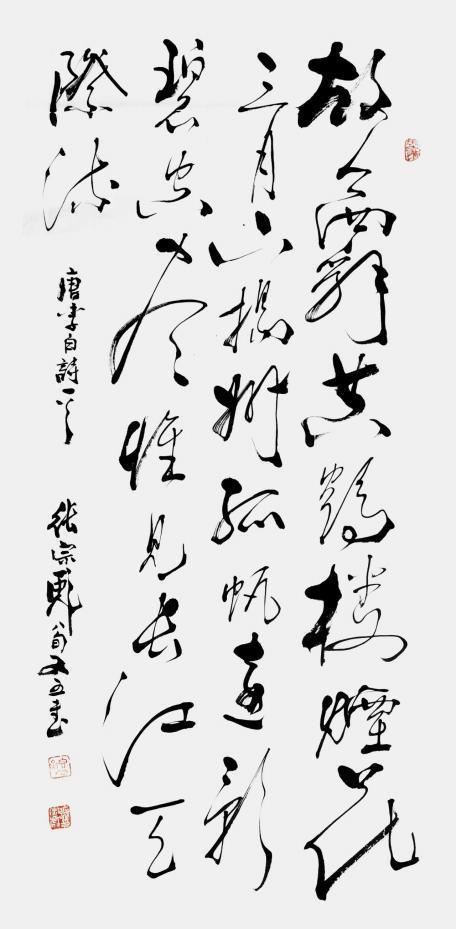 故人西辭黄鶴樓煙花
三月下揚州孤帆遠影
碧空尽惟見長江天
際流
唐李白詩一首 張宗